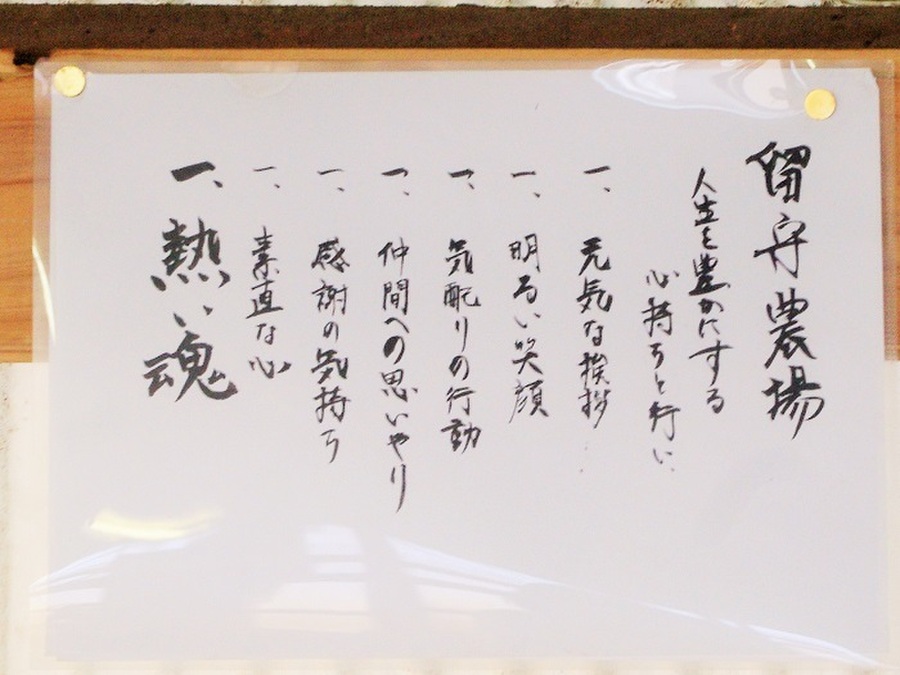 留守農場
人生を豊かにする
心持ちと行い
一、元気な挨拶
一、明るい笑顔
一、気配りの行動
一、仲間への思いやり
一、感謝の気持ち
一、素直な心
一、熱い魂